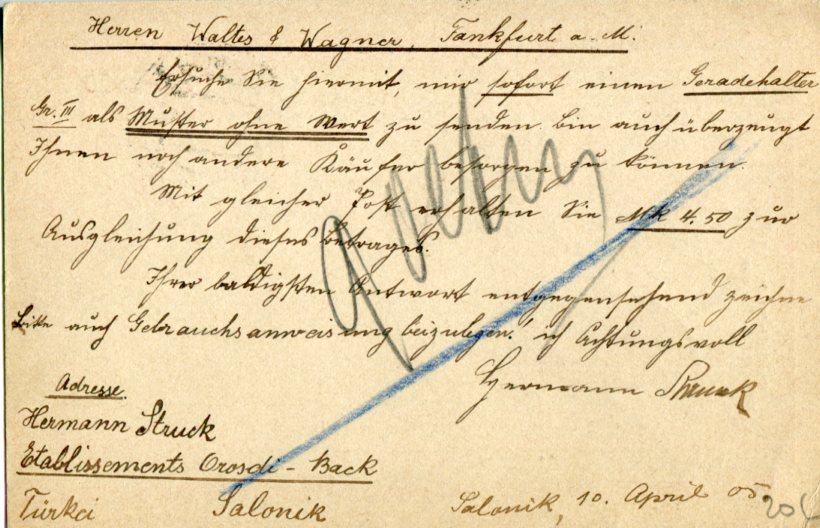 Herren Waltes & Wagner, Fankfurt a. M.
Ersuche Sie hiermit, mir sofort einen Geradehalter
Gr. III als Muster ohne Wert zu senden. Bin auch überzeugt
Ihnen noch andere Käufer besorgen zu können.
Mit gleicher Post erhalten Sie Mk 4.50 zur
Ausgleichung dieses Betrages.
Ihrer baldigsten Antwort entgegensehend zeichne
Bitte auch Gebrauchsanweisung beizulegen." ich Achtungsvoll
Hermann Struck
Adresse.
Hermann Struck
Etablissements Orosdi-Back
Türkei Salonik
Salonik, 10. April 05.